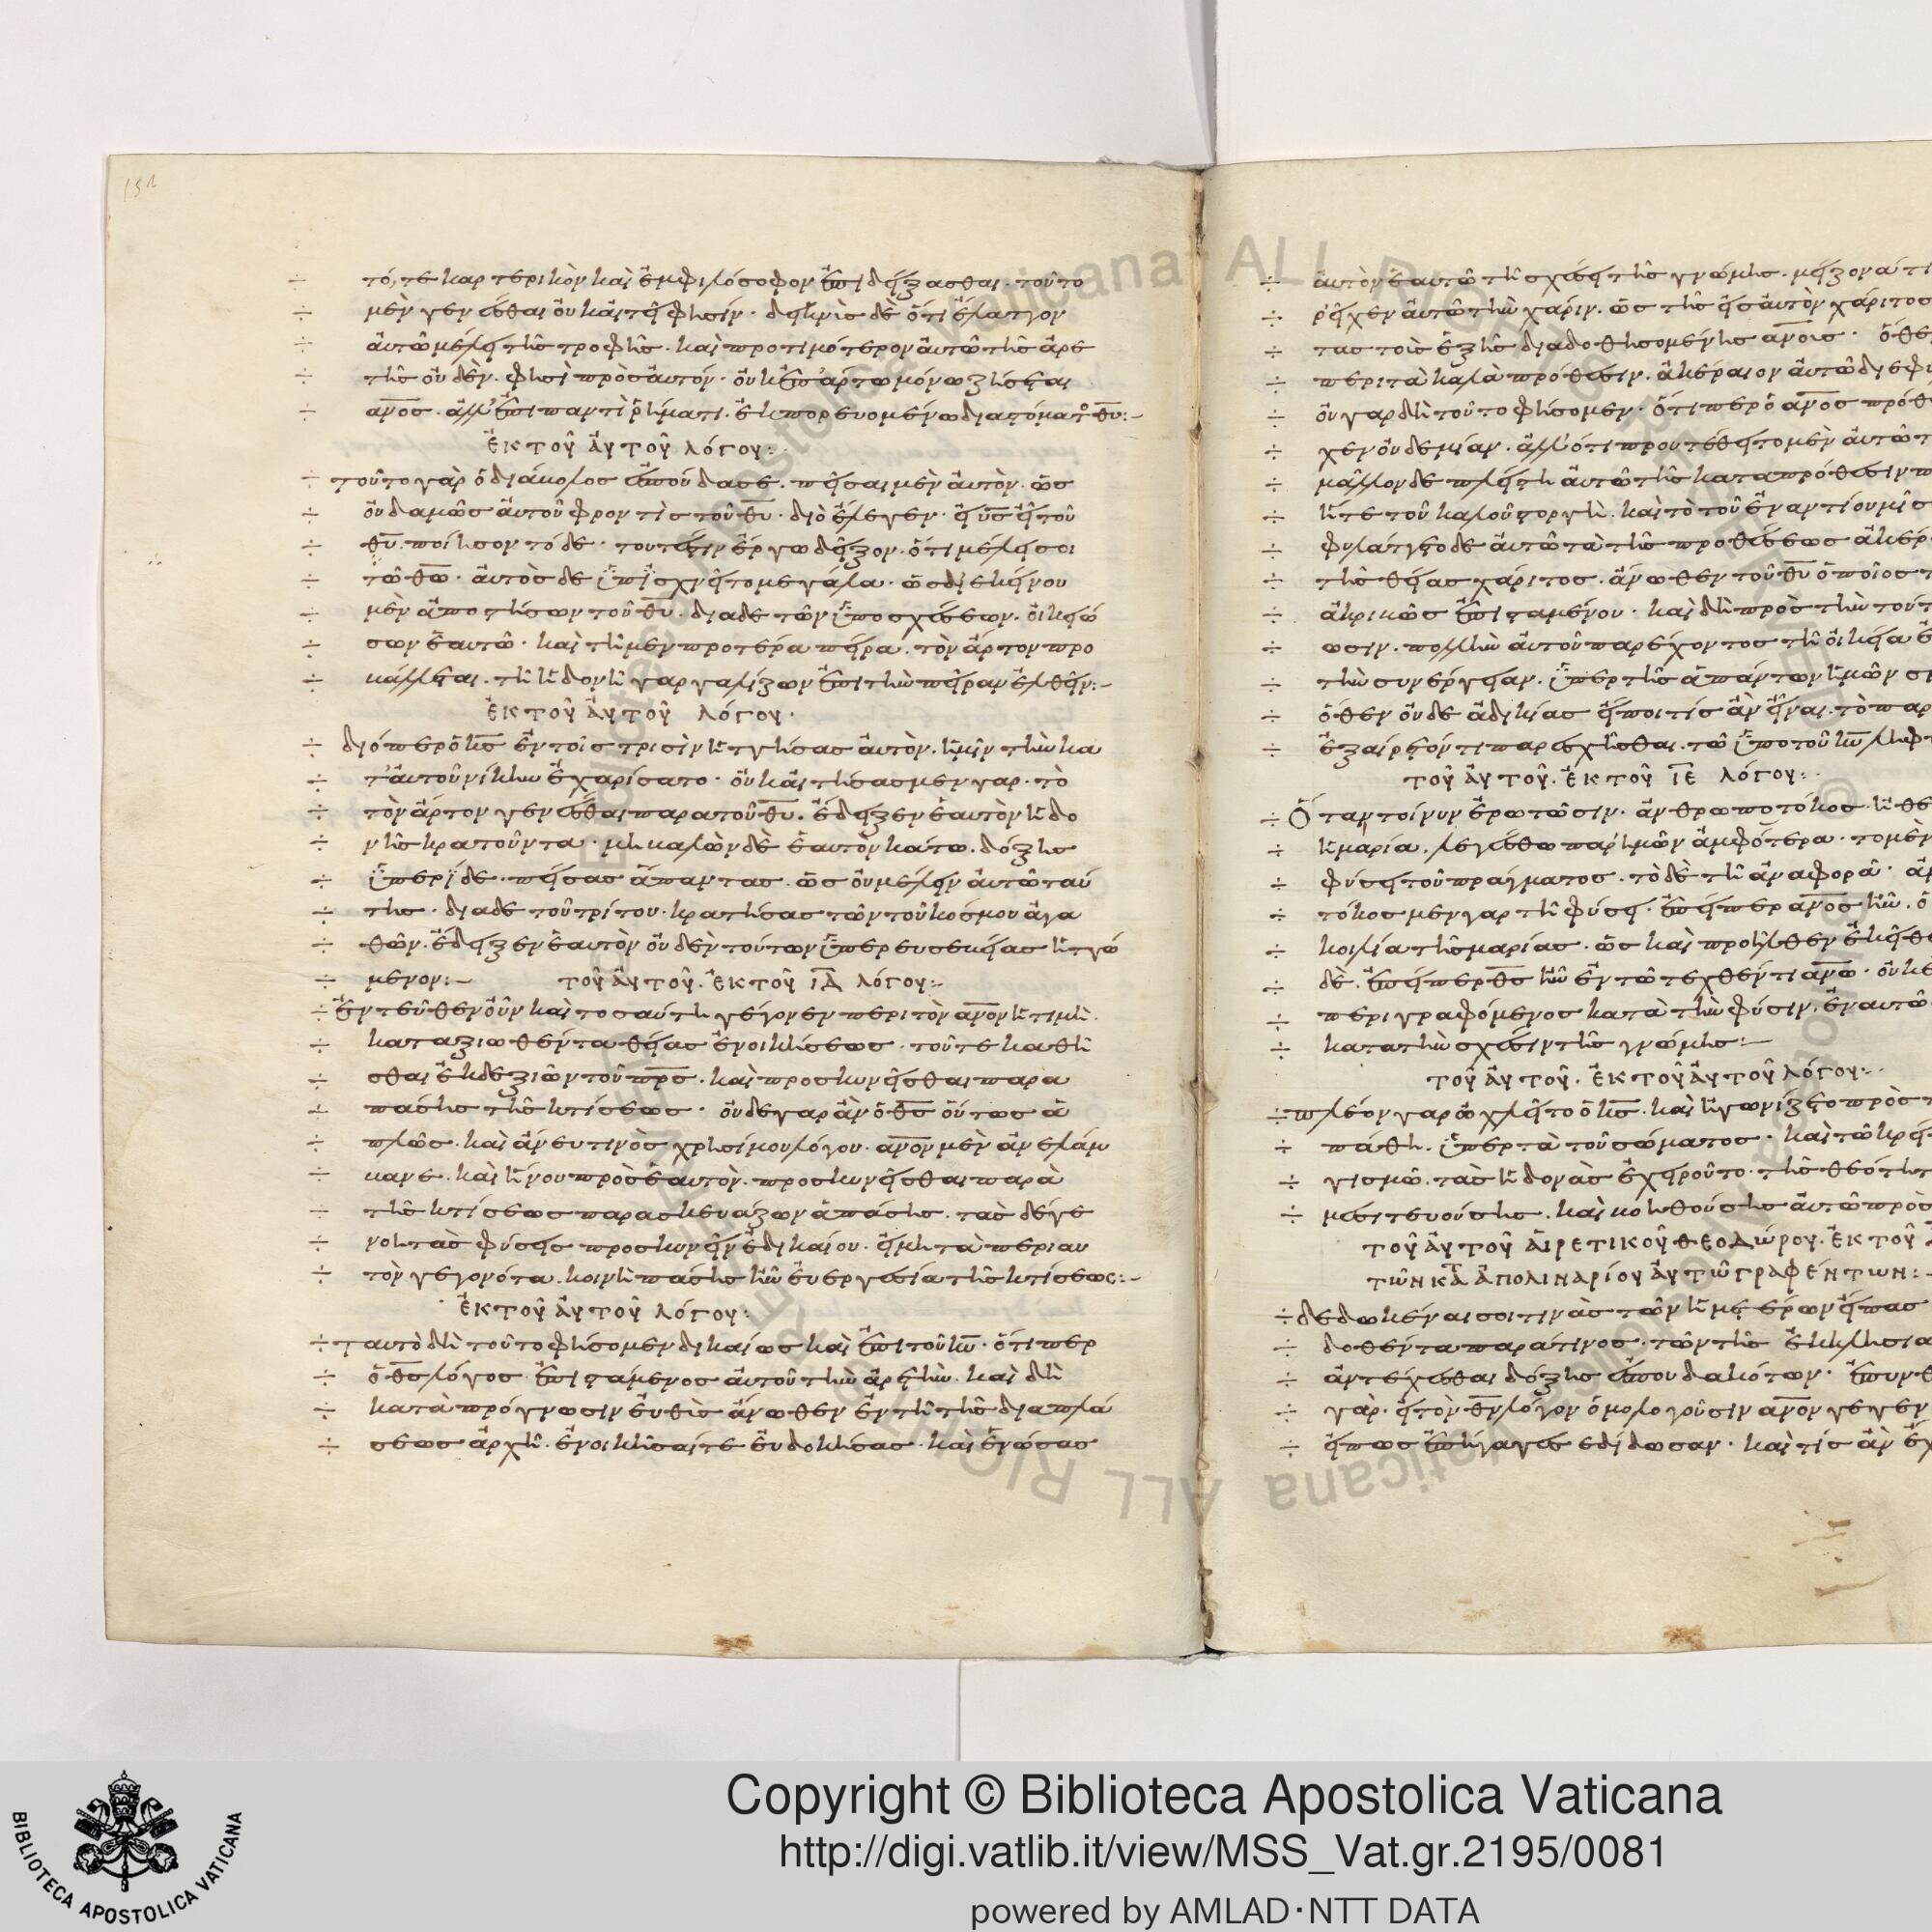 τό, τε καρτερικὸν καὶ ἐμφιλόσοφον ἐπιδείξασθαι. τοῦτο
μὲν γενέσθαι οὐκ ἀιτεῖ φησίν. δεικνὺς δὲ ὅτι ἔλαττον
αὐτῶ μέλει τῆς τροφῆς. καὶ προτιμότερον αὐτῶ τῆς ἀρε
τῆς οὐδὲν. φησὶ πρὸς αὐτόν. οὐκ ἐπ' ἄρτω μόνω ζήσεται
ανος. ἀλλ' ἐπι παντὶ ῥήματι. ἐκπορευομένω δια στόματος θυ:-
ἘΚ ΤΟΥ ἈΥΤΟΥ ΛΌΓΟΥ:
τοῦτο γὰρ ὁ διάβολος ἐσπούδασε. πεῖσαι μὲν αὐτὸν. ὡς
οὐδαμῶς αὐτοῦ φροντὶς τοῦ θυ. διὸ ἔλεγεν. εἰ υς εἶ τοῦ
θυ. ποίησον τόδε. τουτέστιν ἔργω δεῖξον. ὅτι μέλει σοι
τῶ θω. αὐτὸς δε ὑπισχνεῖτο μεγάλα. ὡς δι εκείνου
μὲν ἀποστήσων τοῦ θυ. δια δε τῶν ὑποσχέσεων. οἰκειώ
σων ἑαυτῶ. καὶ τῆ μεν προτέρα πείρα. τὸν ἄρτον προ
βάλλεται. τῆ ἡδονῆ γαργαλίζων ἐπι τὴν πεῖραν ἐλθεῖν:-
ἘΚ ΤΟΥ ἈΥΤΟΥ ΛΌΓΟΥ.
διόπερ ὁ κς ἐν τοῖς τρισὶν ἡττήσας αὐτὸν. ἡμῖν τὴν κα
τ' αὐτοῦ νίκην ἐχαρίσατο. οὐκ αἰτήσας μεν γαρ. τὸ
τὸν ἄρτον γενέσθαι παρα τοῦ θυ. ἔδειξεν ἑαυτὸν ἡδο
νῆς κρατοῦντα. μὴ βαλὼν δὲ ἑαυτὸν κάτω. δόξης
ὑπεριδε. πείσας ἅπαντας. ὡς οὐ μέλειν αὐτῶ ταύ
της. δια δε τοῦ τρίτου. κρατήσας τῶν τοῦ κόσμου ἀγα
θῶν. ἔδειξεν ἑαυτὸν οὐδὲν τούτων ὑπερ ευσεβείας ἡττώ
μενον:- ΤΟΥ ἈΥΤΟΥ. ἘΚ ΤΟΥ ΙΔ ΛΌΓΟΥ:-
ἐντεῦθεν οὖν καὶ τοσαύτη γέγονεν περι τὸν ανον ἡ τιμὴ.
καταξιωθέντα θείας ἐνοικήσεως. τοῦτε καθῆ
σθαι ἐκ δεξιῶν τοῦ πρς. καὶ προσκυνεῖσθαι παρα
πάσης τῆς κτίσεως. οὐδε γαρ ἂν ὁ θς οὕτως ἁ
πλῶς. καὶ ἄνευ τινὸς χρησίμου λόγου. ανον μὲν ἀνελάμ
βανε. καὶ ἥνου πρὸς ἑαυτὸν. προσκυνεῖσθαι παρὰ
τῆς κτίσεως παρασκευάζων ἁπάσης. τὰς δέ γε
νοητὰς φύσεις προσκυνεῖν ἐδικαίου. εἰ μὴ τὰ περι αυ
τὸν γεγονότα. κοινὴ πάσης ἦν ἐυεργεσία τῆς κτίσεως:-
ἘΚ ΤΟΥ ἈΥΤΟΥ ΛΌΓΟΥ:
ταυτὸ δὴ τοῦτο φήσομεν δικαίως καὶ ἐπι τοῦ κυ. ὅτιπερ
ὁ θς λόγος ἐπιστάμενος αὐτοῦ τὴν ἀρετὴν. καὶ δὴ
κατὰ πρόγνωσιν ἐυθὺς ἄνωθεν ἐν τῆ τῆς διαπλά
σεως ἀρχῆ. ἐνοικῆσαί τε ἐυδοκήσας. καὶ ἑνώσας
αὐτὸν ἑαυτῶ τῆ σχέσει τῆς γνώμης. μείζονά τι
ρεῖχεν αὐτῶ τὴν χάριν. ὡς τῆς εἰς αὐτὸν χάριτος
τας τοὶς ἑξῆς διαδοθησομένης ανοις. ὅθε
περι τὰ καλὰ πρόθεσιν. ἀκέραιον αὐτῶ διεφυ
οὐ γαρ δὴ τοῦτο φήσομεν. ὅτιπερ ὁ ανος πρόθ
χεν οὐδεμίαν. ἀλλ' ότι προυτέθειτο μὲν αὐτῶ τ
μᾶλλον δε πλείστη αὐτῶ τῆς κατα πρόθεσιν π
ἥτε τοῦ καλοῦ στοργὴ. καὶ τὸ τοῦ ἐναντίου μῖσ
φυλάττετο δε αὐτῶ τὰ τῆς προθέσεως ἀκέρ
τῆς θείας χάριτος. ἄνωθεν τοῦ θυ ὁποῖος τ
ἀκριβῶς ἐπισταμένου. καὶ δὴ πρὸς τὴν τούτ
ωσιν. πολλὴν αὐτοῦ παρέχοντος τῆ οἰκεία ἐ
τὴν συνέργειαν. ὑπερ τῆς ἁπάντων ἡμῶν σ
ὅθεν οὐδε ἀδικίας εἴποι τίς ἂν εἶναι. τὸ παρ
ἐξαίρετόν τι παρεσχῆσθαι. τῶ ὑπο τοῦ κυ ληφτ
ΤΟΥ ἈΥΤΟΥ. ἘΚ ΤΟΥ ΙΕ ΛΌΓΟΥ:
Ὅταν τοίνυν ἐρωτῶσιν. ἀνθρωποτόκος. ἢ θε
ἡ μαρία. λεγέσθω παρ' ἡμῶν ἀμφότερα. το μὲν
φύσει τοῦ πράγματος. τὸ δὲ τῆ ἀναφορᾶ. ἀν
τόκος μεν γαρ τῆ φύσει. ἐπείπερ ανος ἦν. ὁ
κοιλία τῆς μαρίας. ὡς καὶ προῆλθεν ἐκεῖθε
δὲ. ἐπείπερ θς ἦν ἐν τῶ τεχθέντι ανω. οὐκ ε
περιγραφόμενος κατὰ τὴν φύσιν. ἐν αυτῶ
κατα τὴν σχέσιν τῆς γνώμης:-
ΤΟΥ ἈΥΤΟΥ. ἘΚ ΤΟΥ ἈΥΤΟΥ ΛΌΓΟΥ:-
πλέον γαρ ὠχλεῖτο ὁ κς. καὶ ἠγωνίζετο πρὸς τ
πάθη. ὑπερ τὰ τοῦ σώματος. καὶ τῶ κρεί
γισμῶ. τὰς ἡδονὰς ἐχειροῦτο. τῆς θεότητ
μεσιτευούσης. καὶ βοηθούσης αὐτῶ πρὸς
ΤΟΥ ἈΥΤΟΥ ἉΙΡΕΤΙΚΟΥ ΘΕΟΔΏΡΟΥ. ἘΚ ΤΟΥ
ΤΩΝ ΚΑΤΑ ἈΠΟΛΙΝΑΡΊΟΥ ἈΥΤΩ ΓΡΑΦΈΝΤΩΝ:-
δεδωκέναι σοι τινὰς τῶν ἡμετέρων εἴπας
δοθέντα παρά τινος. τῶν τῆς ἐκκλησια
ἀντέχεσθαι δόξης ἐσπουδακότων.
γὰρ. εἰ τὸν θν λόγον ὁμολογοῦσιν ανον γεγεν
ἐδίδωσαν. καὶ τίς ἂν ἐχ
Copyright © Biblioteca Apostolica Vaticana
http://digi.vatlib.it/view/MSS_Vat.gr.2195/0081
powered by AMLAD·NTT DATA
BIBLIOTECA APOSTOLICA VATICANA